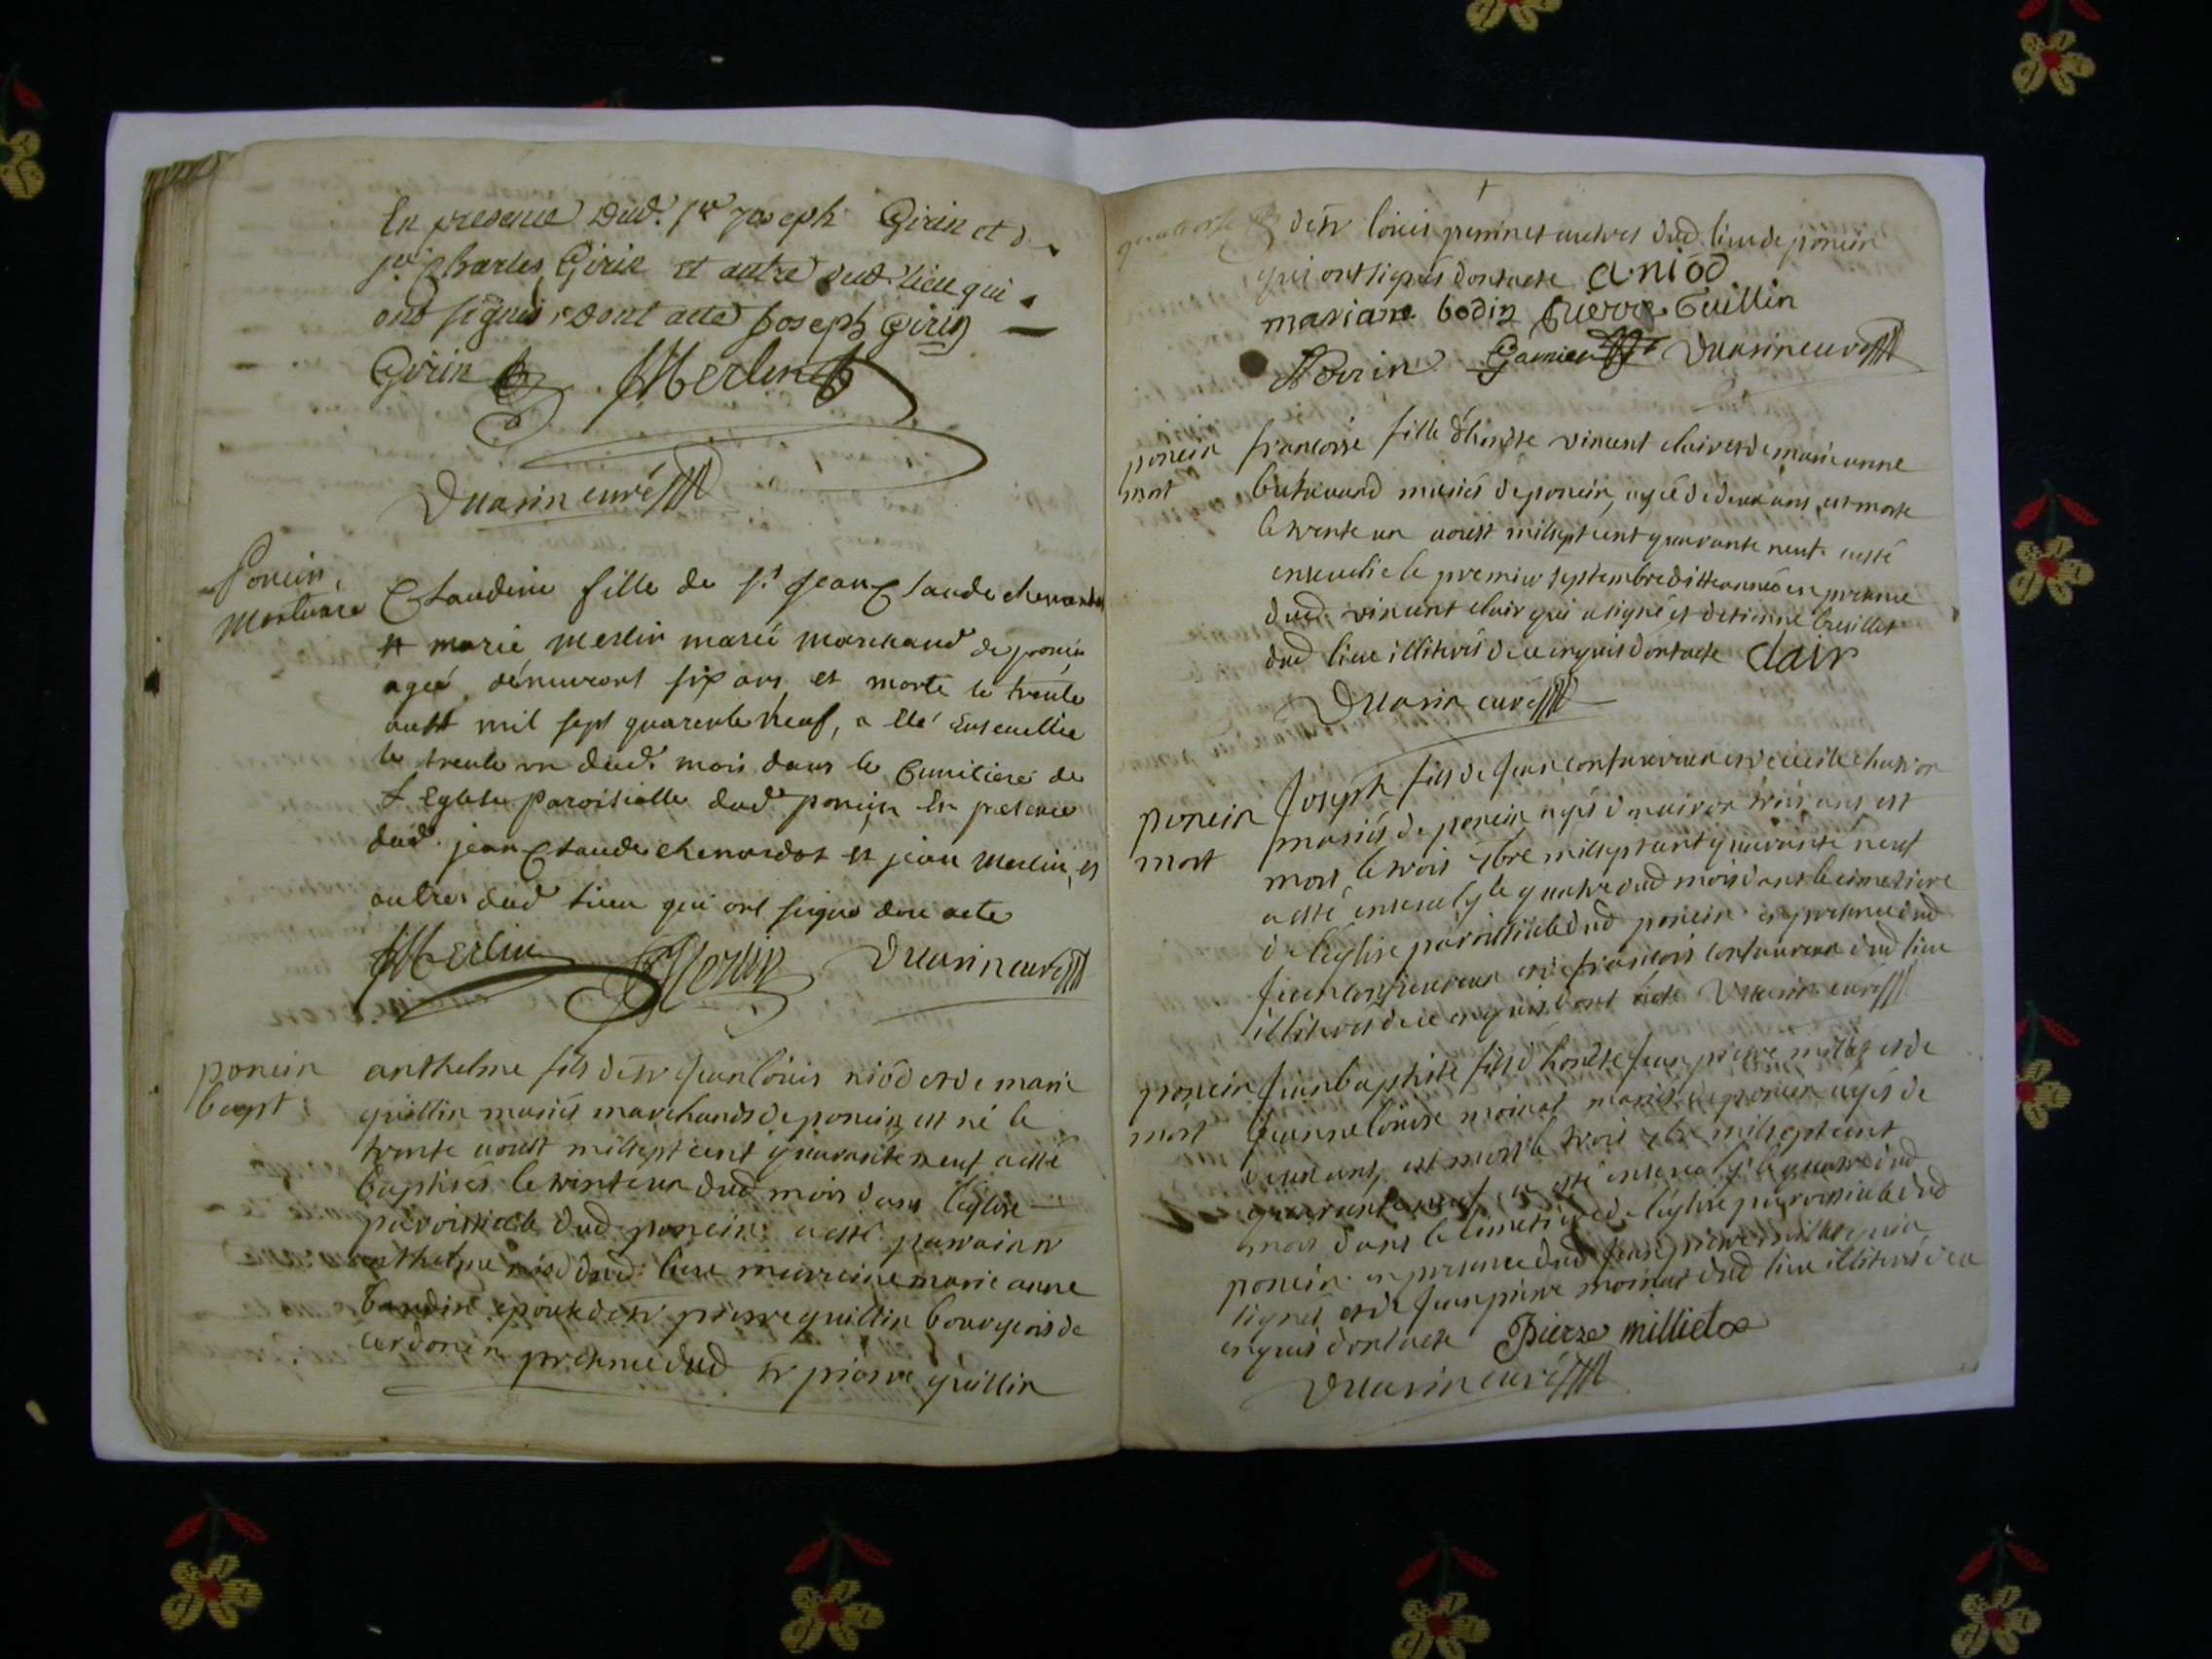 En presence dud. sr joseph Girin et d
sr Charles Girin et autre dud. lieu qui
ont signés, dont acte Joseph Girin
Girin JMerlin
Duarin curé
Poncin,
Mortuaire
Claudine fille de sr. Jean Claude chenardot
et marie merlin marié marchand de poncin
ageé d'énuiront six ans et morte le trente
aust mil sept quarente neuf, a été Enseuellie
le trente un dud. mois dans le cimitiere de
L'Eglise paroissialle dud. poncin En presence
dud. jean Claude chenardot et jean Merlin, et
autres dud. lieu qui ont signé don acte
JMerlin Merlin Duarin curé
poncin
bapt.
anthelme fils de sr Jean louis niod et de marie
guillin mariés marchands de poncin est né le
trente aoust mil sept cent quarante neuf a esté
baptisés le trente un dud mois dans l'église
paroissiale dud. poncin a esté parrain sr
anthelme niod dud. lieu marreine marie anne
baudin epouse de sr pierre guillin bourgeois de
cerdon en presence dud sr pierre guillin
de sr louis perrin et autres dud. lieu de poncin
qui ont signés dont acte a. niod
mariane bodin pierre Guillin
Perrin Garnier Duarin curé
poncin
mort
francoise fille d'honete vincent clair et de marie anne
mariés de poncin, agée de deux ans est morte
le trente un aoust mil sept cent quarante neuf a esté
enseuelie le premier septembre ditte année en presence
dud. vincent clair qui a signé et detienne breillet
dud lieu illiterés de ce enquis dont acte Clair
Duarin curé
poncin
mort
Joseph fils de Jean confavreux et de cecile chatron
mariés de poncin agés d'enuiron trois ans est
mort le trois 7bre mil sept cent quarante neuf
a esté enseuely le quatre dud mois dans le cimetiere
de l'église paroissiale dud poncin en presence dud
Jean confavreux et de francois confavreux dud lieu
illiterés de ce enquis dont acte Duarin curé
poncin
mort
Jean baptiste fils d'honete Jean pierre milliet et de
Jeanne louise moinat mariés de poncin agés de
deux ans, est mort le trois 7bre mil sept cent
quarante neuf, a esté enseuely le quatre dud
mois dans le cimetiere de l'église paroissiale dud
poncin en presence dud Jean pierre milliet qui a
signés et de Jean pierre moinat dud lieu illiterés de ce
enquis dont acte Pierre milliet
Duarin curé